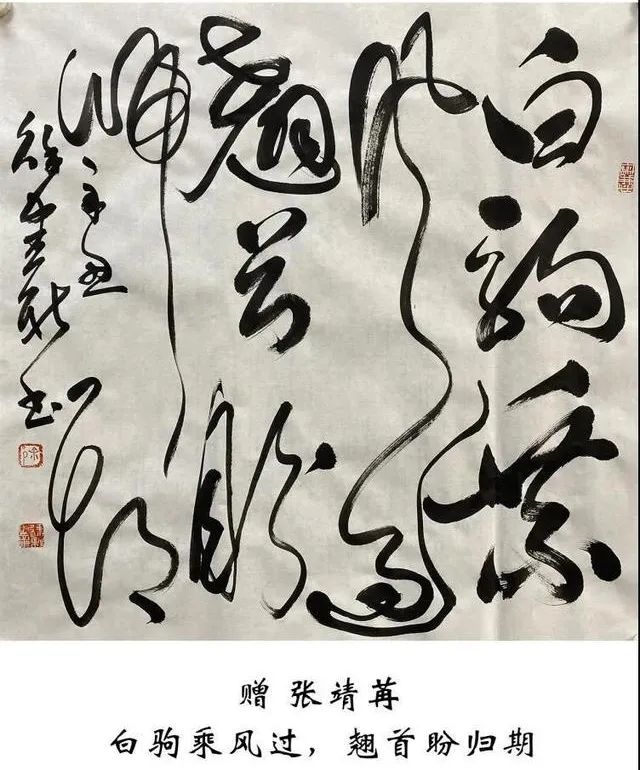 白驹乘
风过
翘首盼
归期
赠 张靖苒
白驹乘风过，翘首盼归期